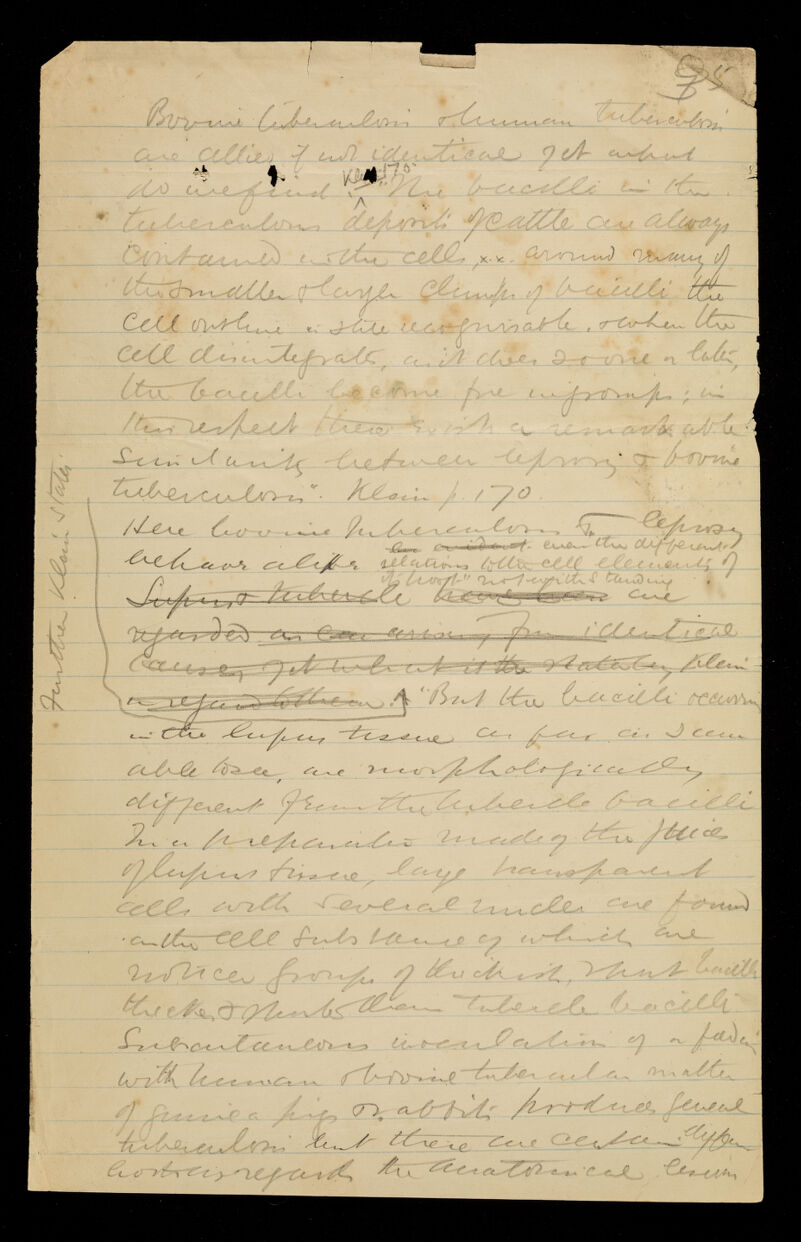 95
Bovine tuberculosis & human tuberculosis
are allied if not identical yet what
do we find. Klein p. 170. "The bacilli in the
tuberculous deposits of cattle are always
contained in the cells, x.x. around many of
the smaller & larger clumps of bacilli the
cell outline is still recognisable, & when the
cell disintegrates, as it does sooner or later,
the bacilli become free in groups; in
this respect there exists a remarkable
similarity between leprosy & bovine
tuberculosis". Klein p. 170.
Here bovine tuberculosis & leprosy
behave alike even the different
relations to the cell elements of
notwithstanding
Lupus & tubercle have been are
regarded as arising from identical
causes yet what is the state by Klein
in regard to them. "But the bacilli occurring
in the lupus tissue as far as I am
able to see, are morphologically
different from the tubercle bacilli
In a preparation made of the juices
of lupus tissue, large transparent
cells with several nuclei are found
in the cell substance of which are
noticed groups of thickish, short bacilli
thicker & shorter than tubercle bacilli
Subcutaneous inoculation of or feeding
with human or bovine tubercular matter
of guinea pigs or rabbits produces general
tuberculosis but there are certain differ-
as regards the anatomical lesions
Further Klein states.